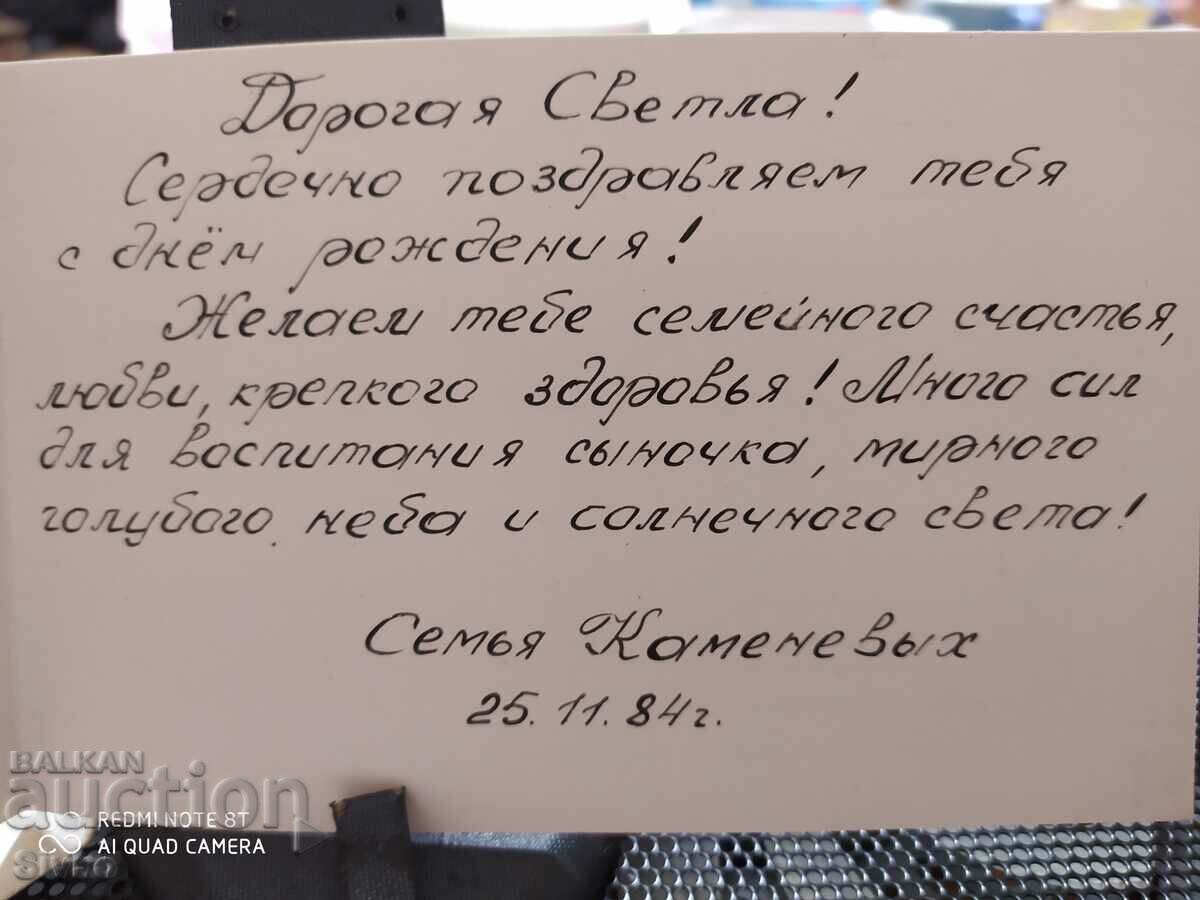 Дорогая Светла!
Сердечно поздравляем тебя
с днём рождения!
Желаем тебе семейного счастья,
любви, крепкого здоровья! Много сил
для воспитания сыночка, мирного
голубого неба и солнечного света!
Семья Каменевых
25.11.84г.
BALKAN
auction
REDMI NOTE 8T
AI QUAD CAMERA